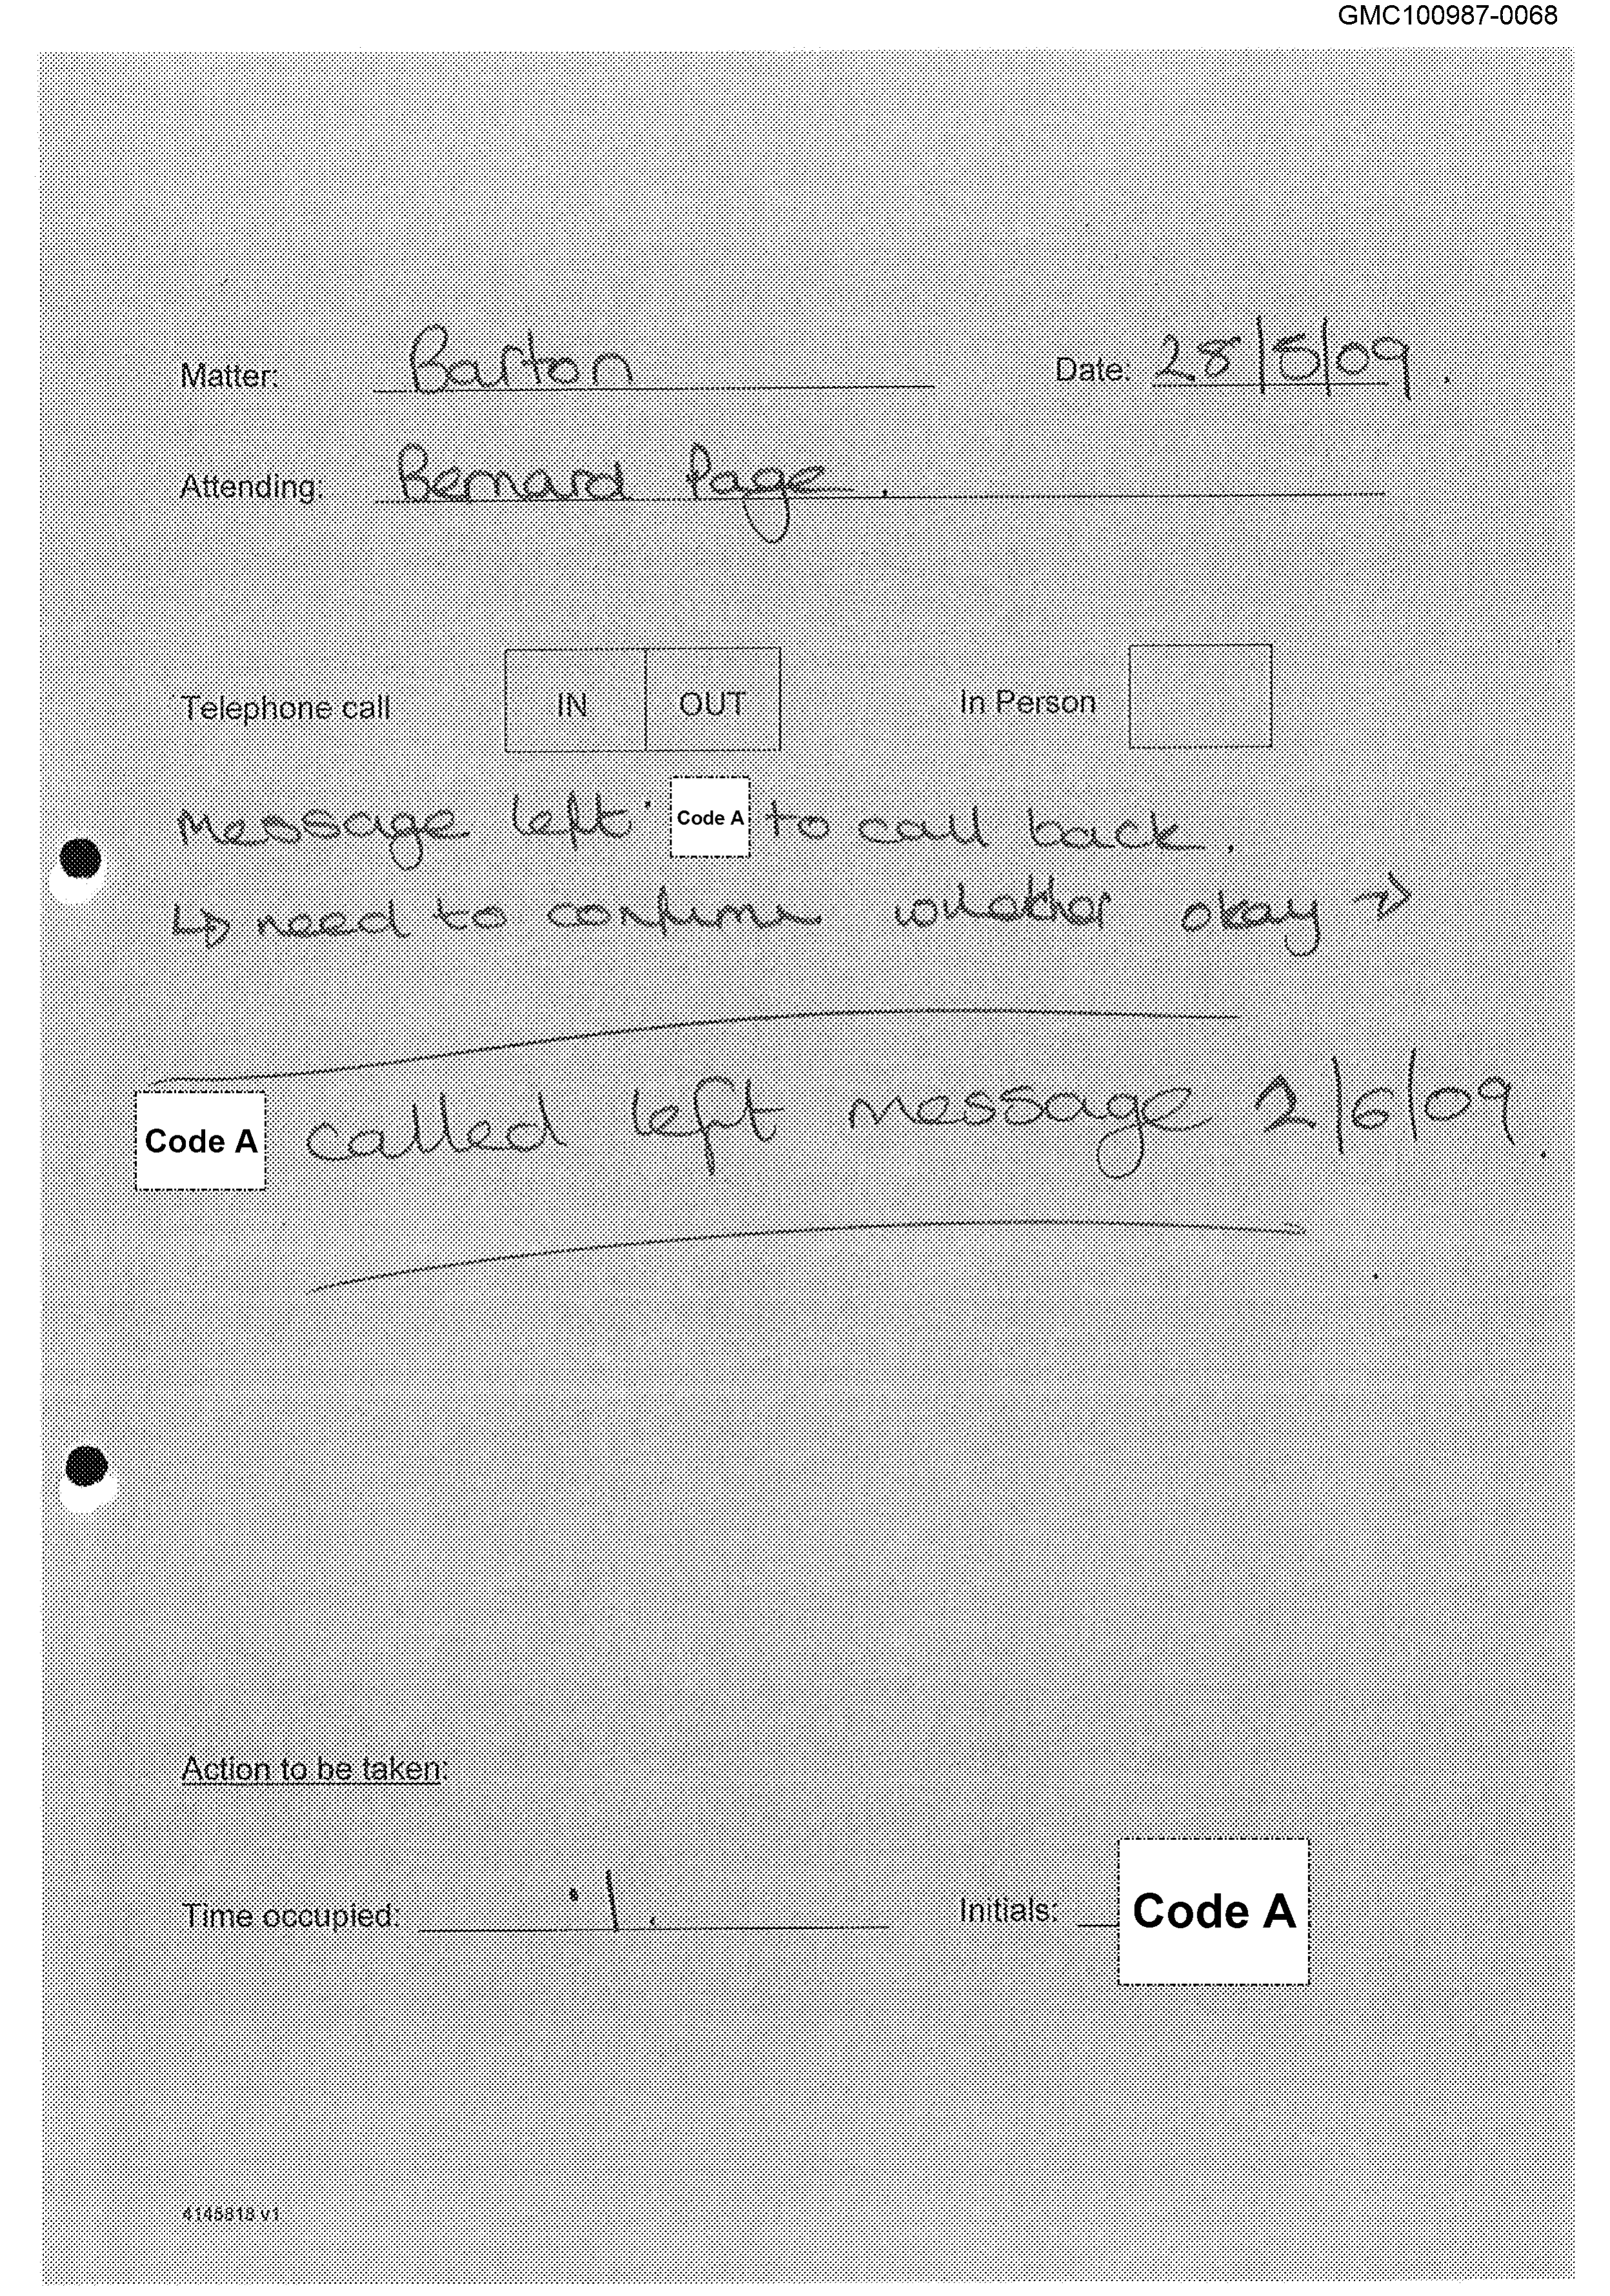 GMC100987-0068
Matter: Barton Date: 28/5/09.
Attending: Bernard Page.
Telephone call IN OUT In Person
Message left Code A to call back.
↳ need to confirm whether okay →
Code A called left message 2/6/09.
Action to be taken:
Time occupied: .1. Initials: Code A
4145818 v1